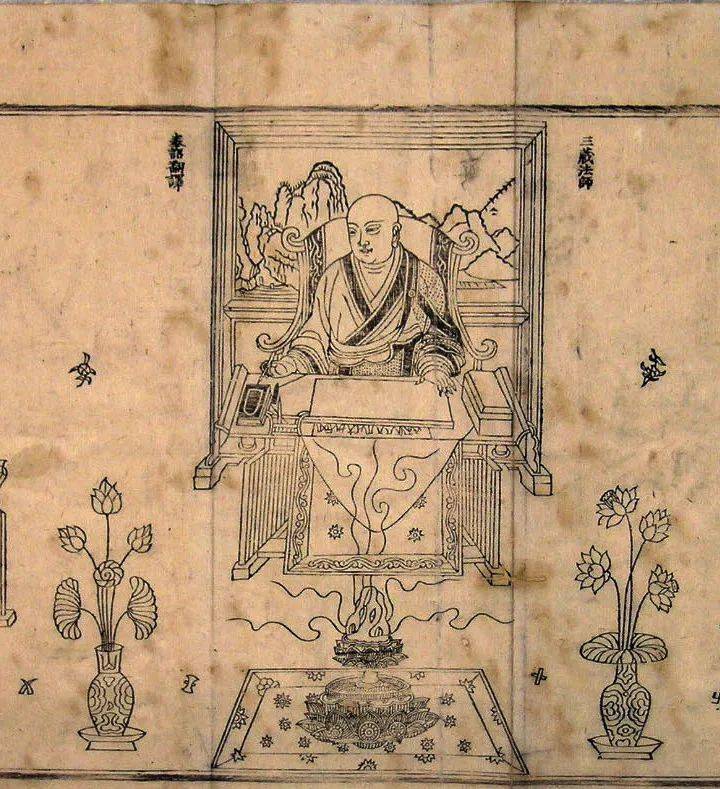 三藏法師
奉詔翻譯